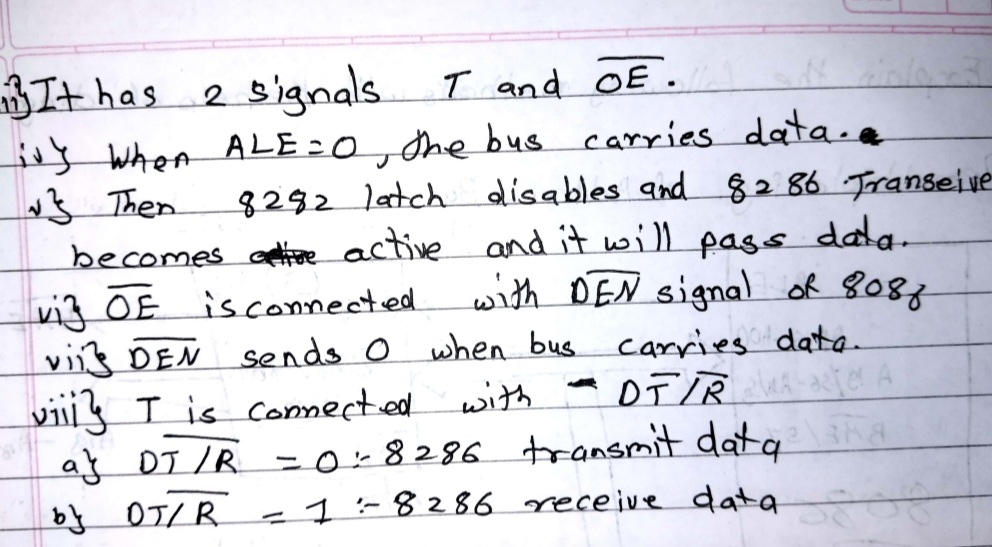 iii} It has 2 signals T and O̅E̅.
iv} When ALE=0, the bus carries data.
v} Then 8282 latch disables and 8286 Transeive
becomes active and it will pass data.
vi} O̅E̅ is connected with D̅E̅N̅ signal of 808
vii} D̅E̅N̅ sends 0 when bus carries data.
viii} T is connected with - DT̅/R̅
a} DT̅/̅R̅ = 0 :- 8286 transmit data
b} DT̅/̅R̅ = 1 :- 8286 receive data